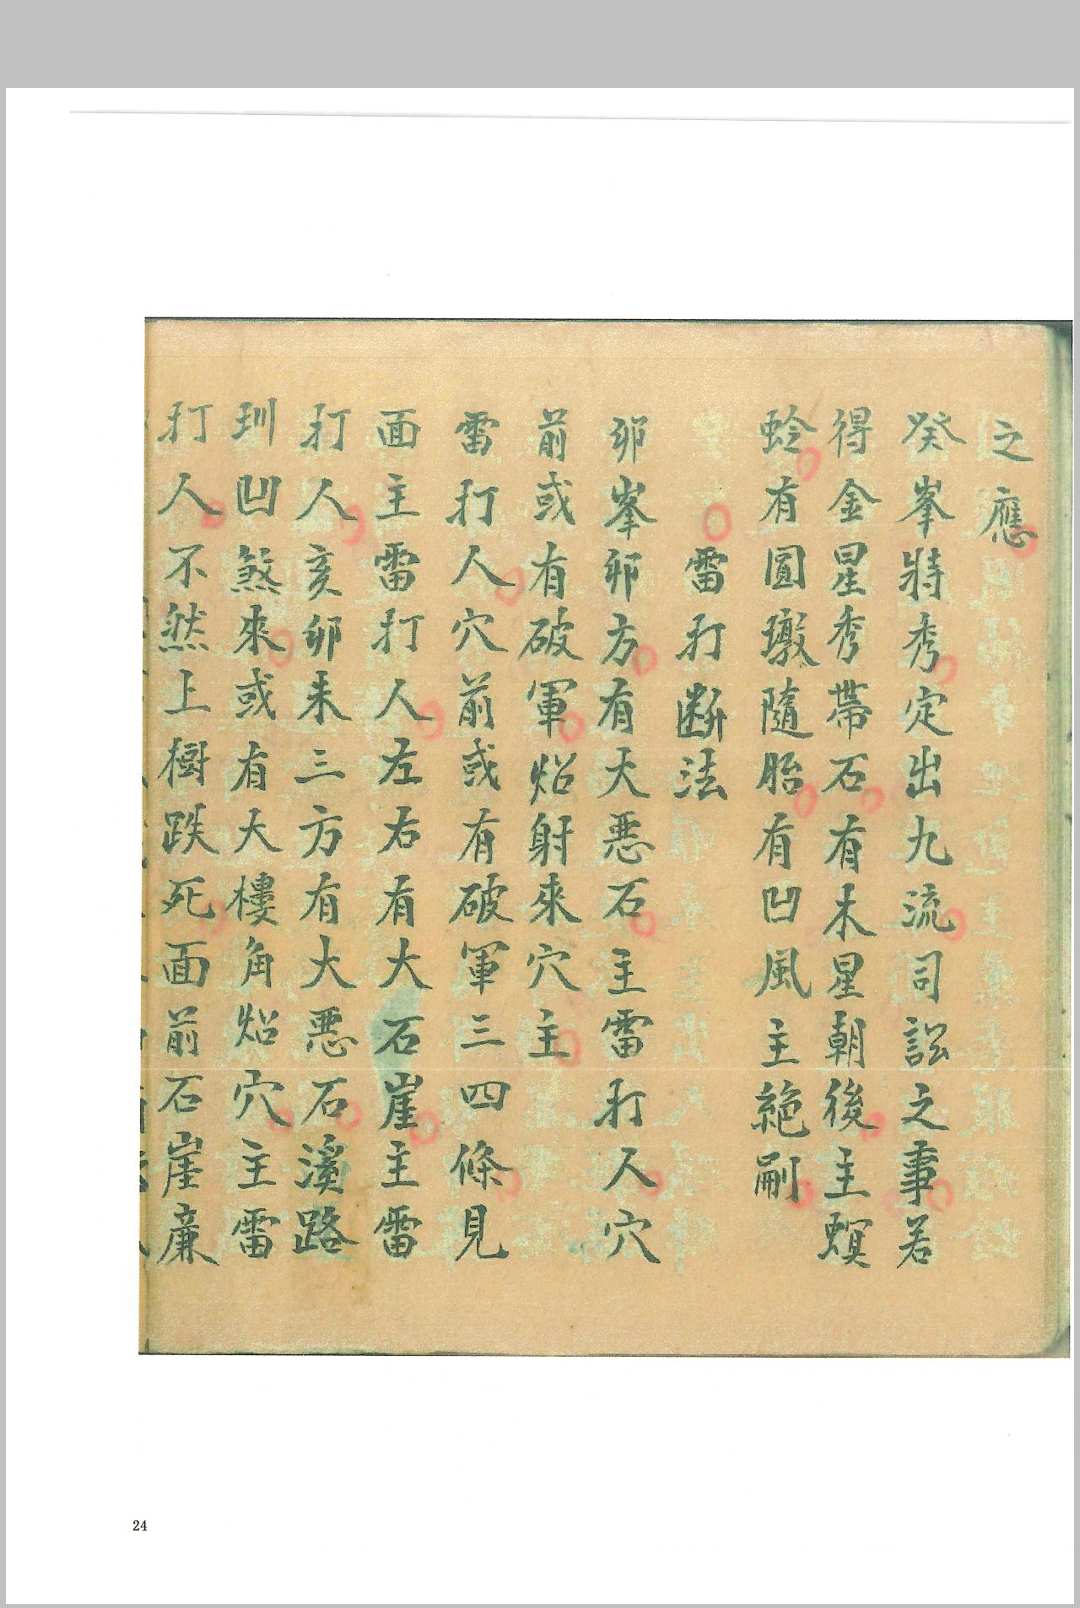 之應
癸峯特秀定出九流司訟之事若
得金星秀帶石有木星朝後主螟
蛉有圓墩隨胎有凹風主絕嗣
雷打断法
卯峯卯方有大悪石主雷打人穴
前或有破軍焰射來穴主
雷打人穴前或有破軍三四條見
面主雷打人左右有大石崖主雷
打人亥卯未三方有大悪石溪路
圳凹煞來或有大樓角焰穴主雷
打人不然上樹跌死面前石崖廉
24